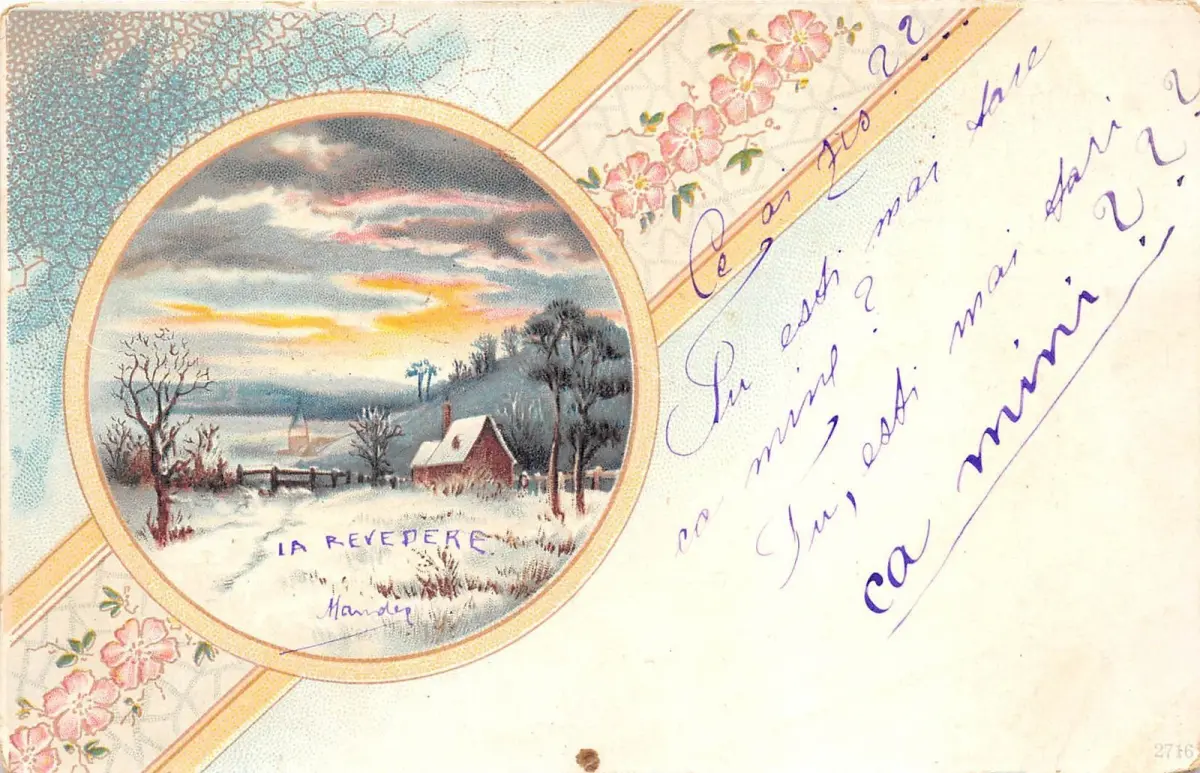 Ce ai zis ? ? ...
Tu esti mai tare
ca mine ?
Tu, esti mai tari
ca mini ? ? ?
LA REVEDERE.
2716